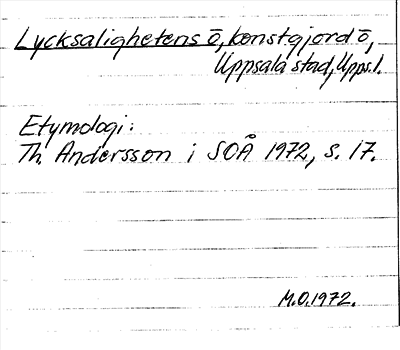 Lycksalighetens ö, konstgjord ö,
Uppsala stad, Upps.l.
Etymologi:
Th. Andersson i SOÅ 1972, s. 17.
M.O. 1972.